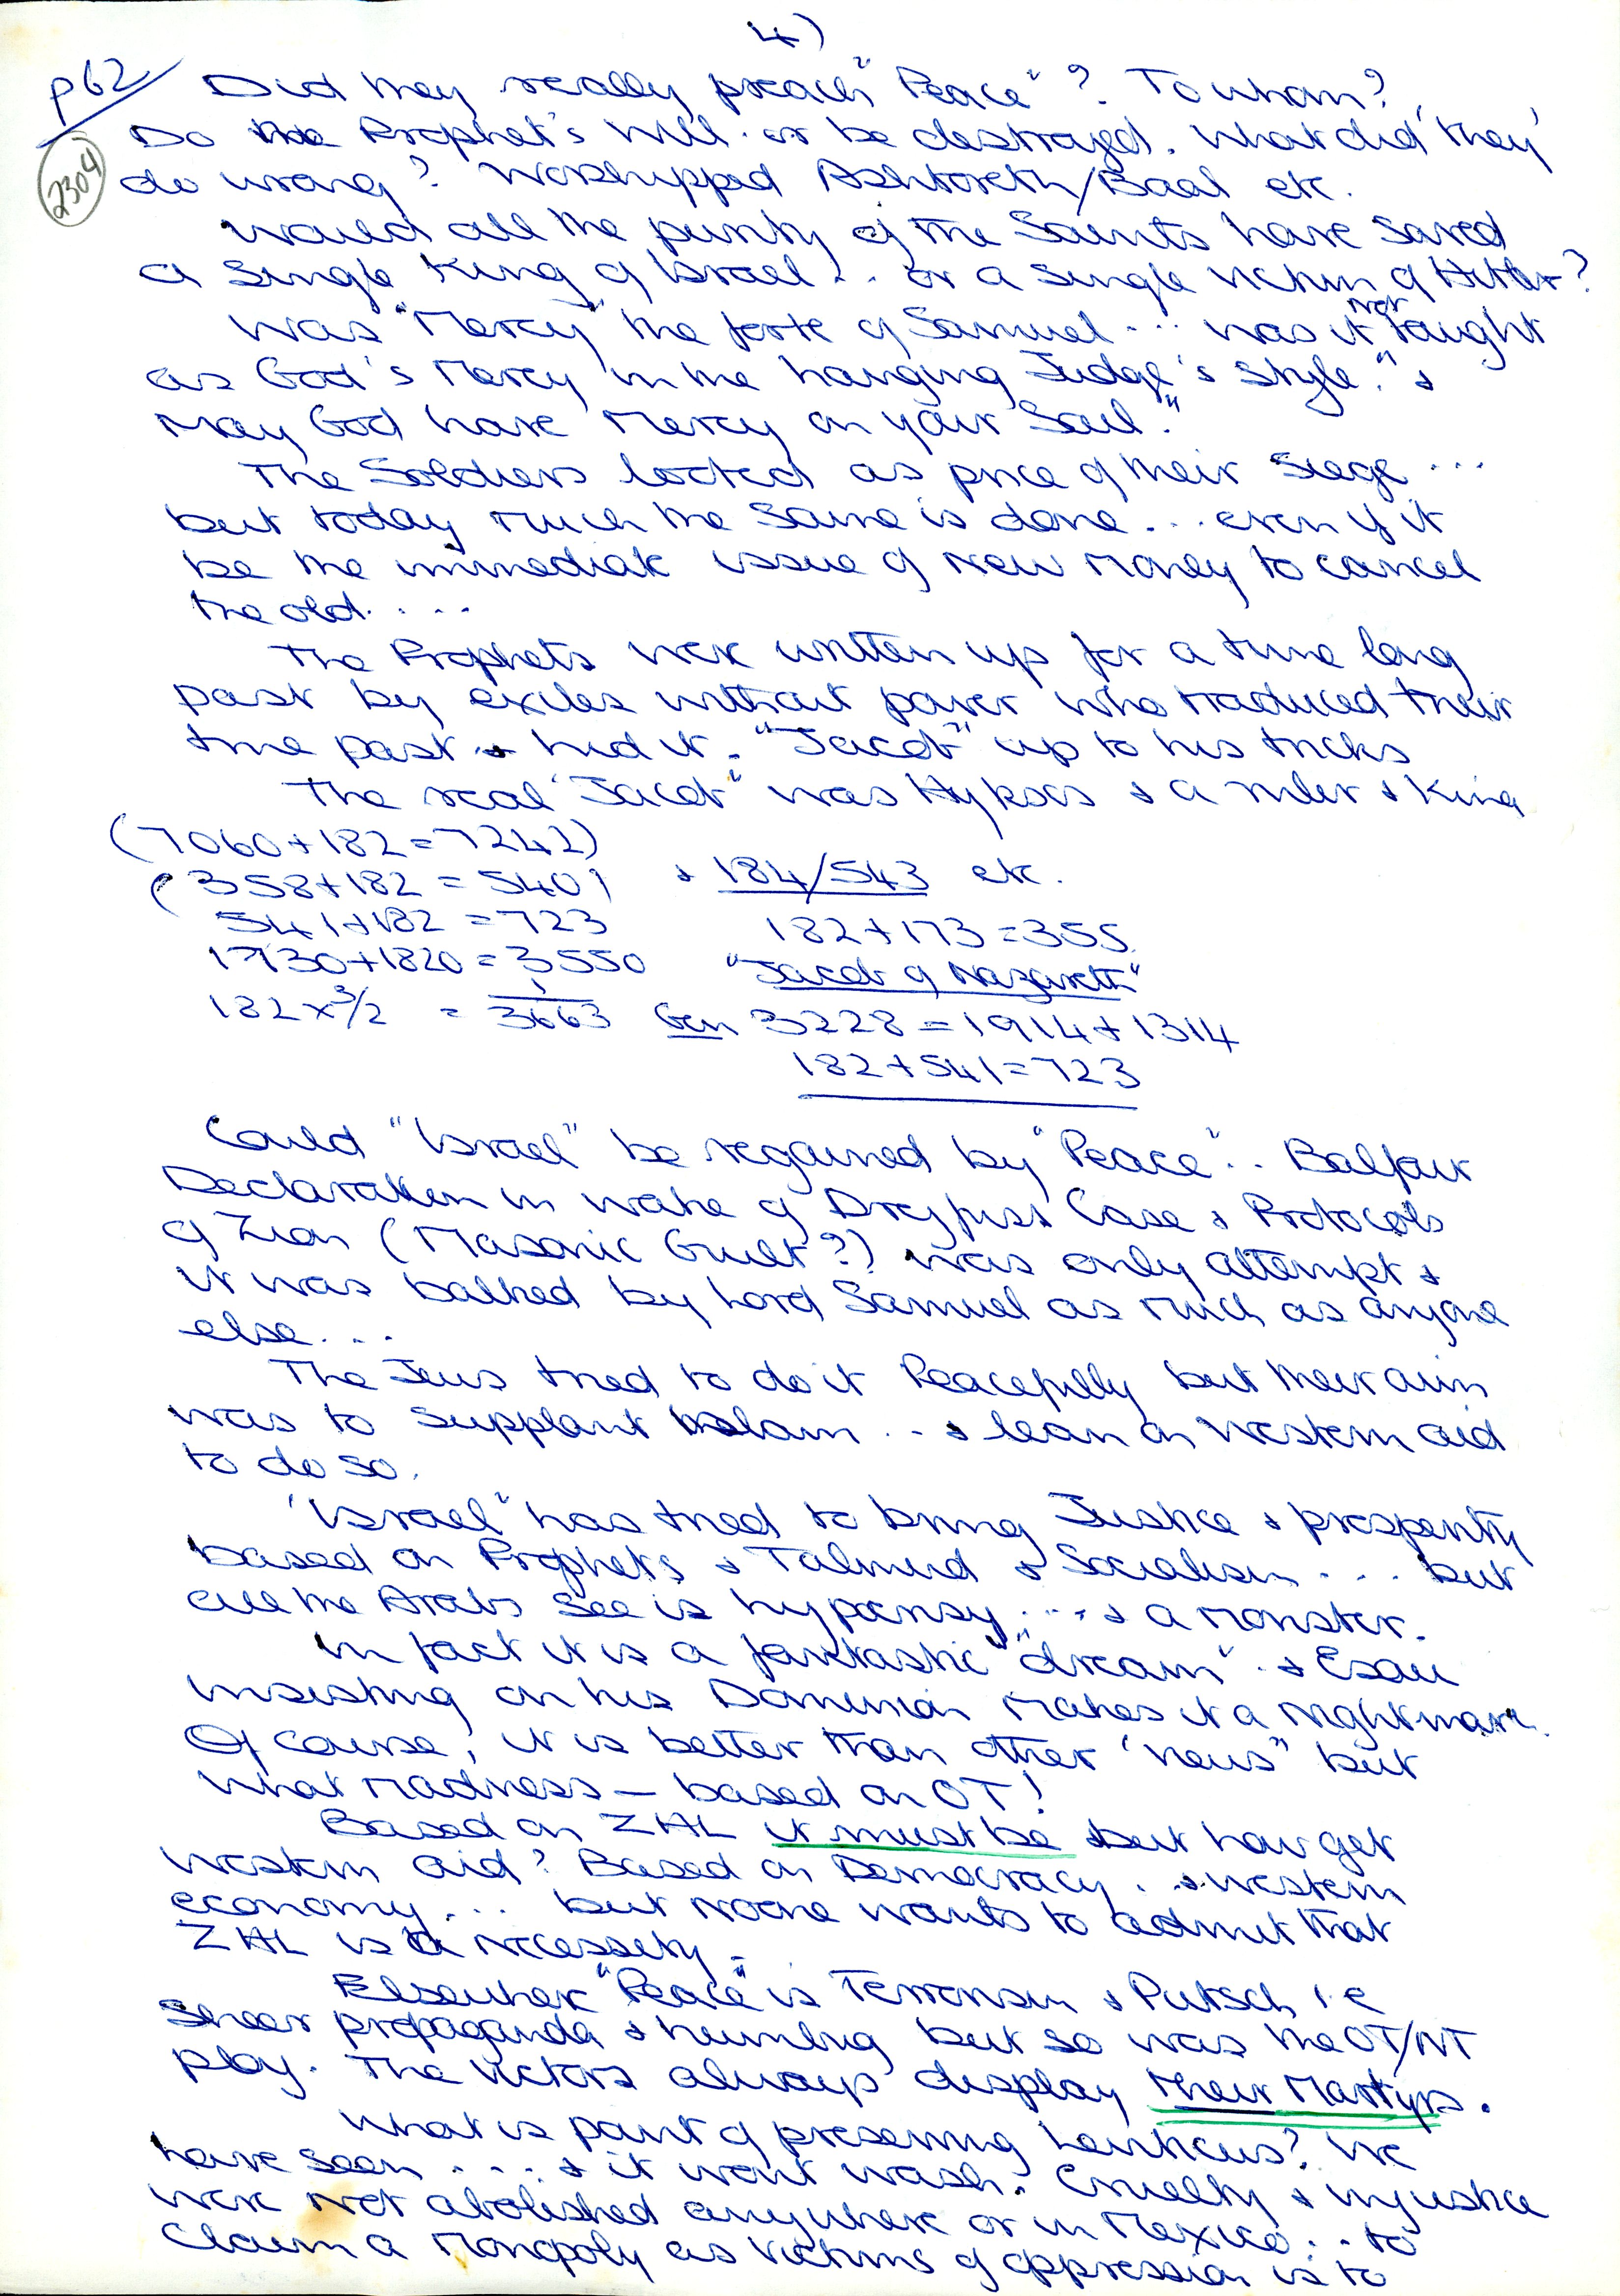 4)
p62
2304
Did they really preach "Peace"? To whom?
Do the Prophet's Will. or be destroyed. What did 'they'
do wrong? Worshipped Ashtoreth/Baal etc.
Would all the purity of the Saints have saved
a single King of Israel .. or a single victim of Hitler?
Was "Mercy" the forte of Samuel ... was it not taught
as God's Mercy in the hanging Judge's style. "&
May God have Mercy on your Soul."
The Soldiers looted as price of their siege ...
but today much the same is done ... even if it
be the immediate issue of New Money to cancel
the old. ...
The Prophets were written up for a time long
past by exiles without power who traduced their
time past & hid it. "Jacob" up to his tricks
The real "Jacob" was Hyksos & a ruler & King
(7060+182=7242)
(358+182 = 540) & 184/543 etc.
541+182 = 723 182+173=355.
1730+1820=3550 "Jacob of Nazareth"
182 x 3/2 = 1/3663 Gen 3228 = 1914+1314
182+541=723
Could "Israel" be regained by "Peace".. Balfour
Declaration in wake of Dreyfuss Case & Protocols
of Zion (Masonic Guilt?) was only attempt &
it was balked by Lord Samuel as much as anyone
else...
The Jews tried to do it Peacefully but their aim
was to supplant Islam .. & lean on Western aid
to do so.
"Israel" has tried to bring Justice & prosperity
based on Prophets & Talmud & Socialism ... but
all the Arabs see is hypocrisy ... & a monster.
In fact it is a fantastic "dream" .. & Esau
insisting on his Dominion makes it a nightmare.
Of course, it is better than other "news" but
what madness — based on OT!
Based on ZAL it must be but how get
Western aid? Based on Democracy .. & Western
economy ... but noone wants to admit that
ZAL is a necessity.
Elsewhere "Peace" is Terrorism & Putsch i e
sheer propaganda & humbug but so was the OT/NT
play. The Victors always display their Martyrs.
What is point of preserving Leviticus? We
have seen .... & it wont wash. Cruelty & injustice
were not abolished anywhere or in Mexico .. to
Claim a Monopoly as Victims of oppression is to